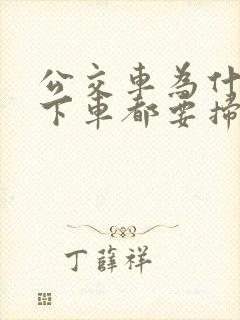 公交車為什
下車都要掃
丁薛祥